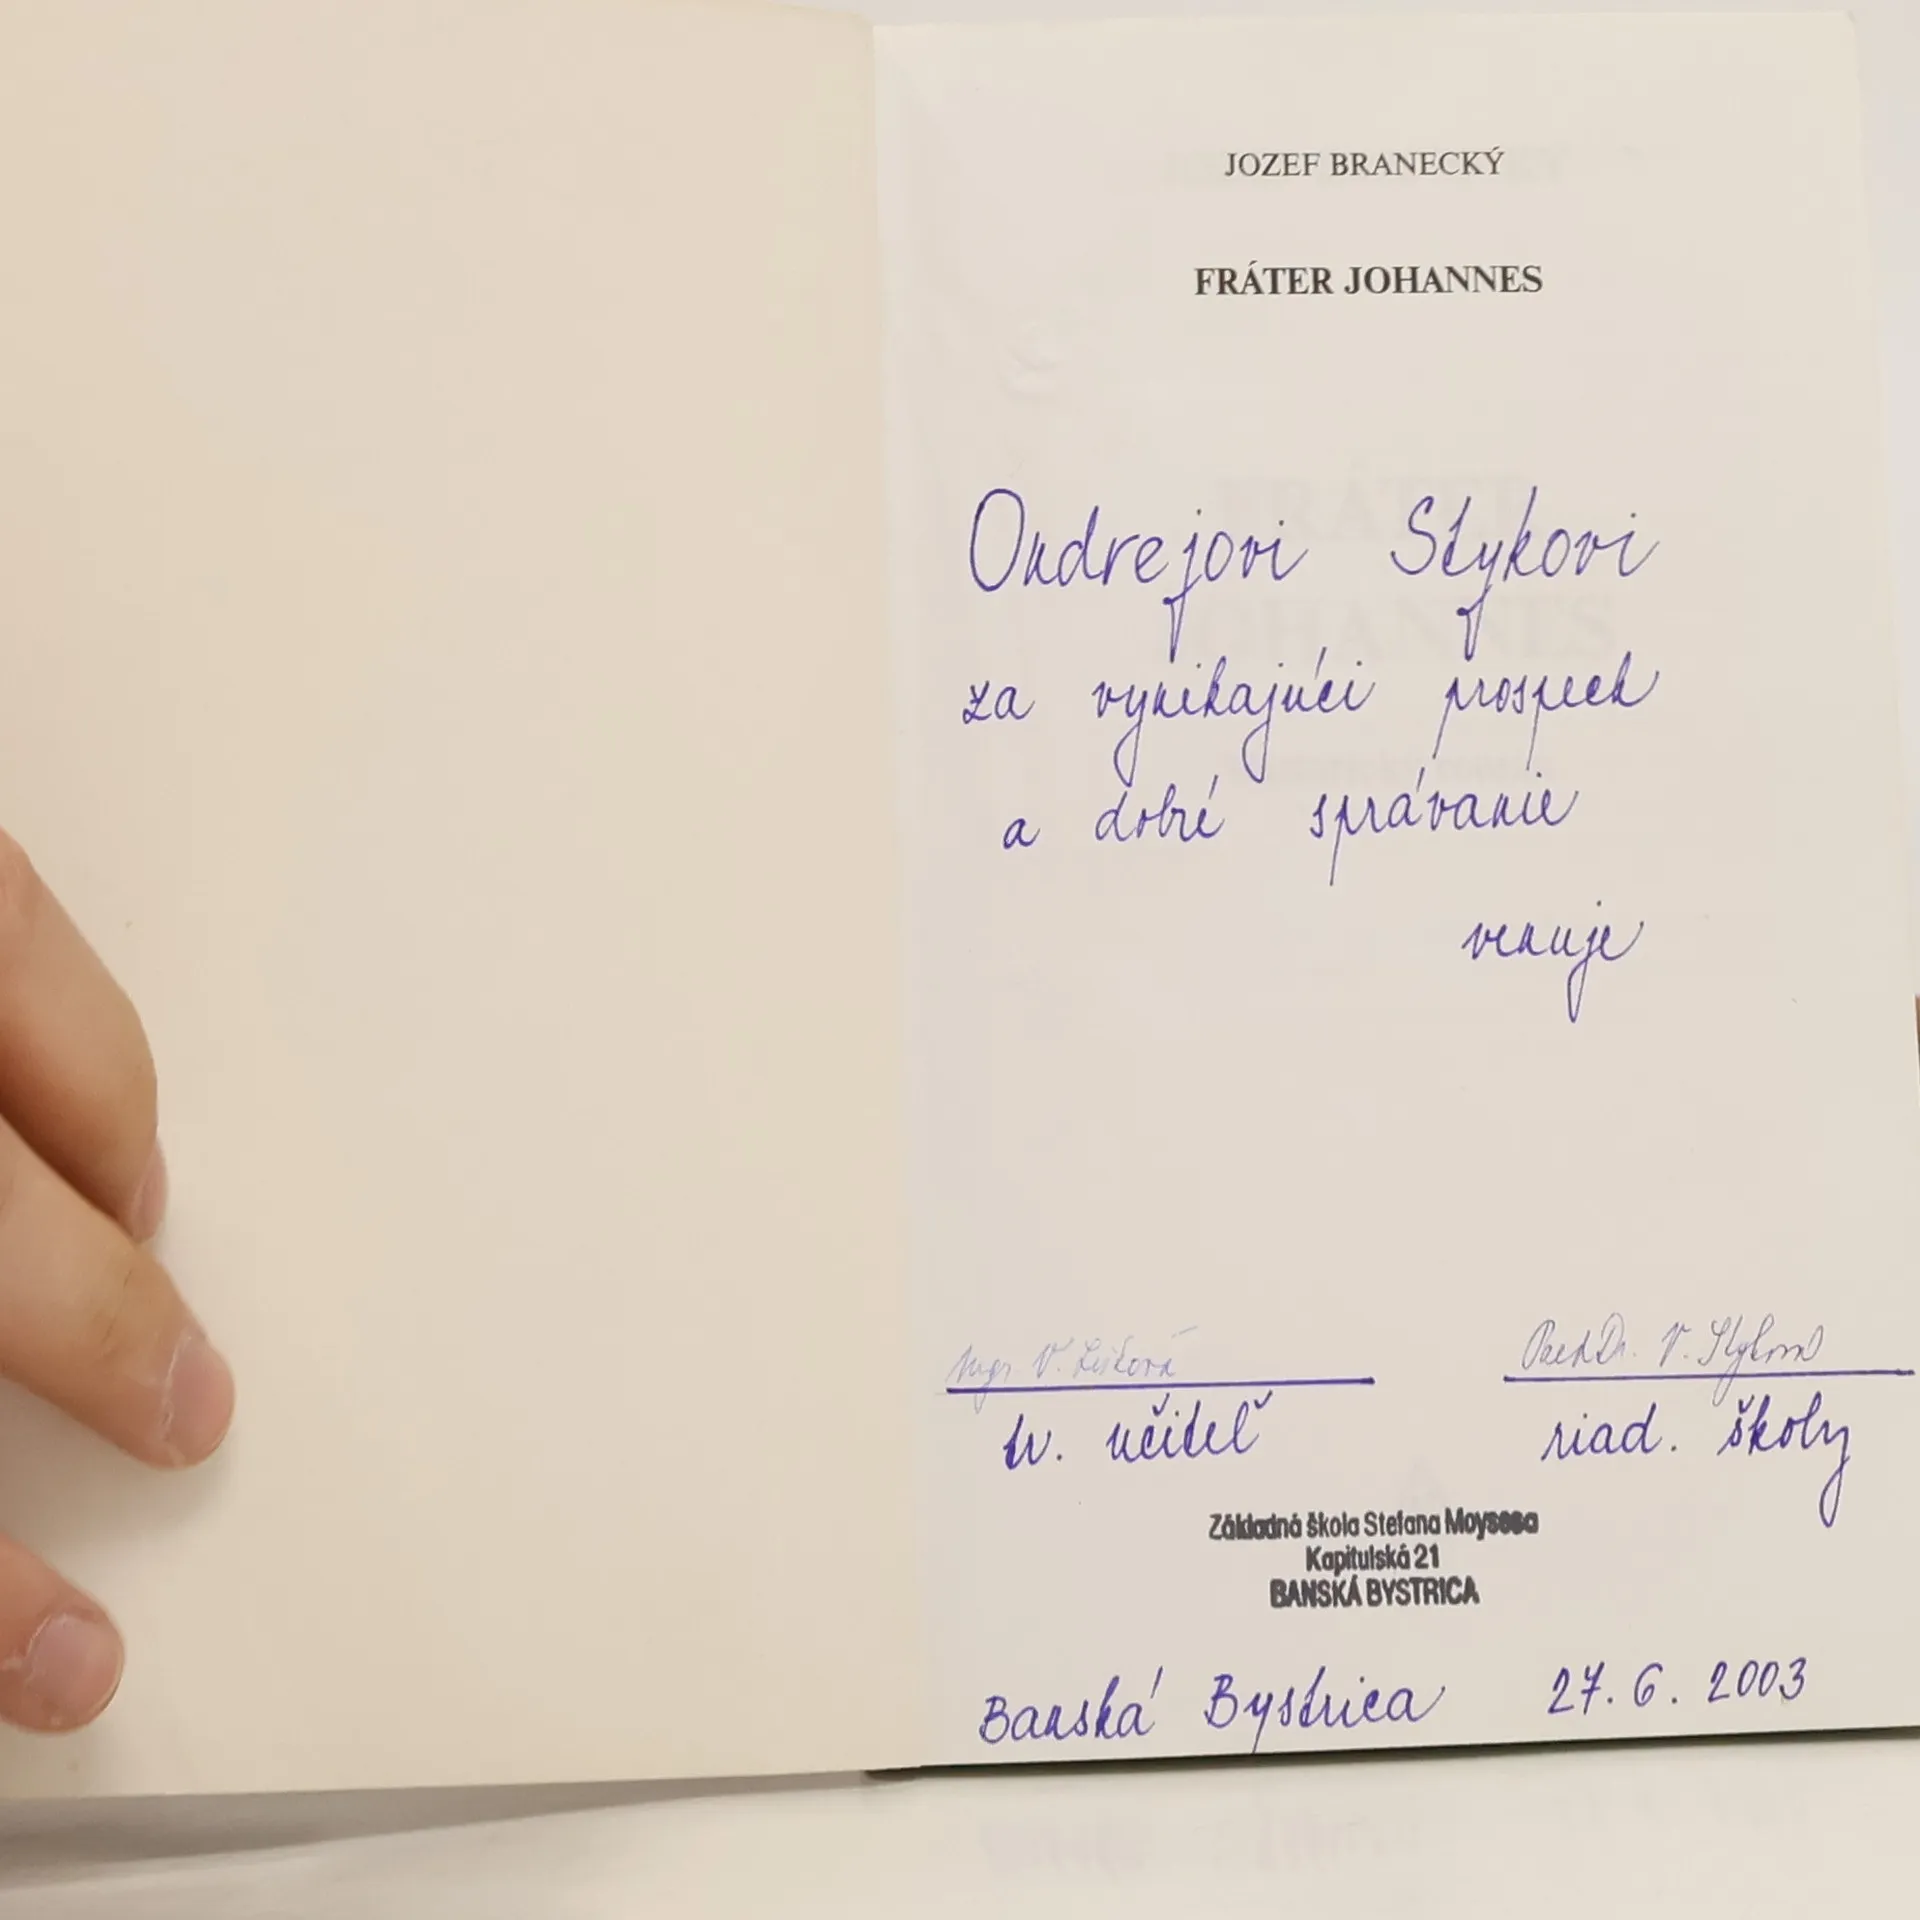 JOZEF BRANECKÝ
FRÁTER JOHANNES
Ondrejovi Stykovi
za vynikajúci prospech
a dobré správanie
venuje
Mgr. V.
PaedDr. V.
tr. učiteľ
riad. školy
Základná škola Štefana Moysesa
Kapitulská 21
BANSKÁ BYSTRICA
Banská Bystrica 27. 6. 2003